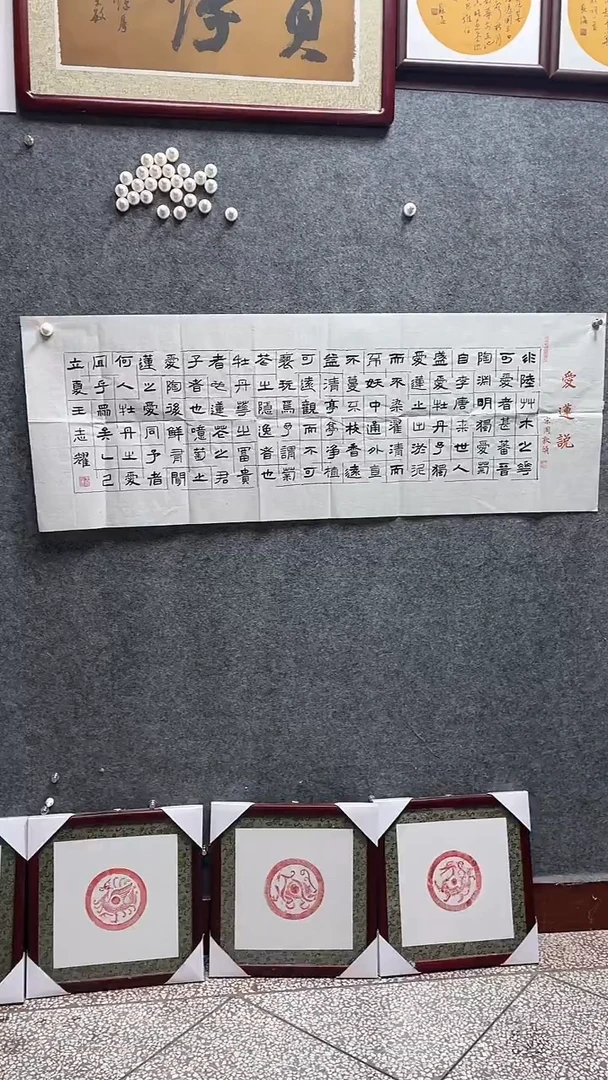 愛蓮說
宋周敦頤
水陸艸木之華
可愛者甚蕃晉
陶淵明獨愛菊
自李唐来世人
盛愛牡丹予獨
愛蓮之出於泥
而不染濯清而
不妖中通外直
不蔓不枝香遠
益清亭亭净植
可遠觀而不可
褻玩焉予謂菊
花之隱逸者也
牡丹華之冨貴
者也蓮花之君
子者也噫菊之
愛陶後鮮有聞
蓮之愛同予者
何人牡丹之愛
宜乎眾矣乙巳
立夏王志耀